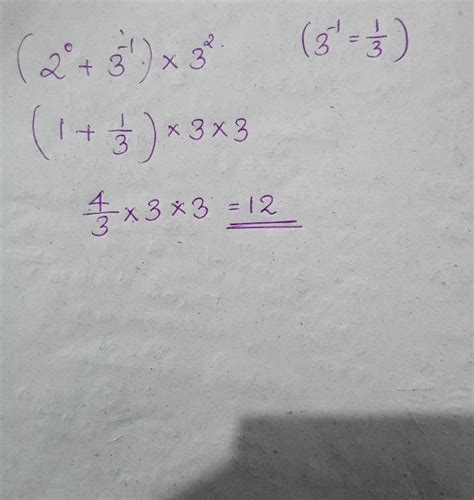 (2⁰ + 3⁻¹) × 3² (3⁻¹ = 1/3)
(1 + 1/3) × 3 × 3
4/3 × 3 × 3 = 12